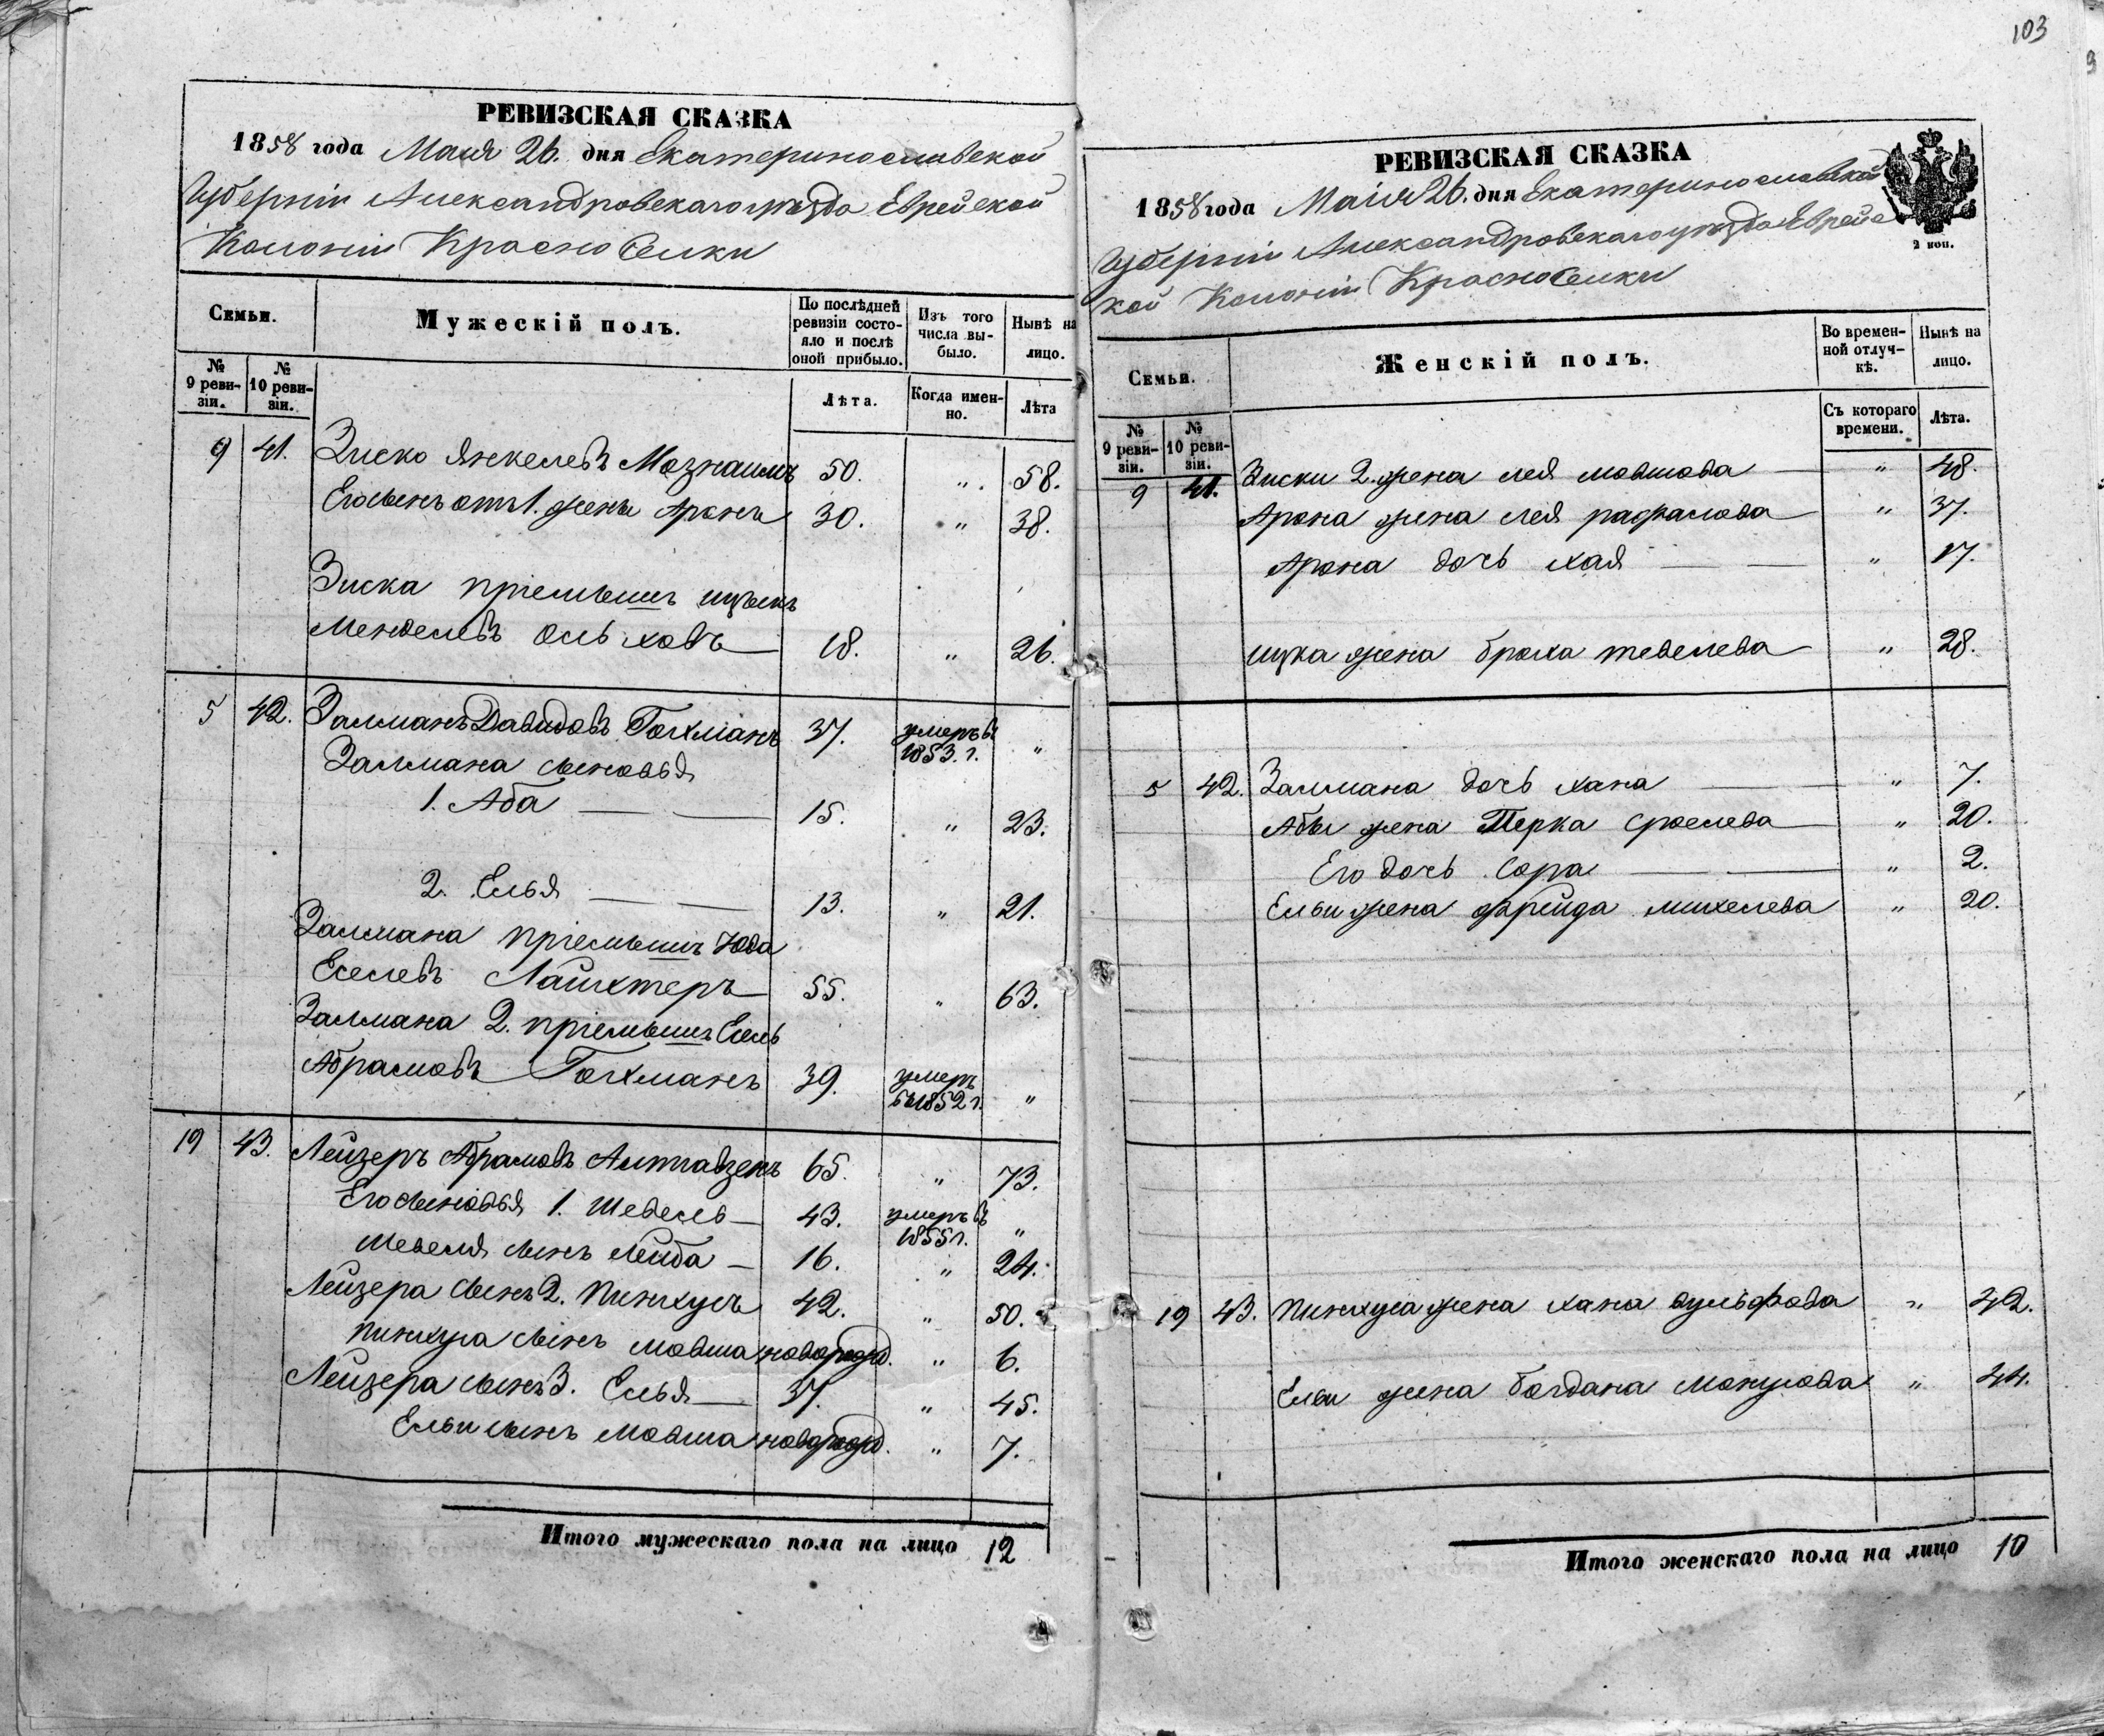 103
РЕВИЗСКАЯ СКАЗКА
1858 года Маія 26. дня Екатеринославской
Губерніи Александровскаго уѣзда Еврейской
Колоніи Красноселки
Семьи.
Мужескій полъ.
По послѣдней ревизіи состояло и послѣ оной прибыло.
Изъ того числа выбыло.
Нынѣ на лицо.
№ 9 ревизіи.
№ 10 ревизіи.
Лѣта.
Когда именно.
Лѣта
9 41. Зиско Янкелевъ Мознаимъ 50. " 58.
Его сынъ отъ 1. жены Аронъ 30. " 38.
Зиска пріемышъ Ицыкъ
Менделевъ Ольховъ 18. " 26.
5 42. Залманъ Давидовъ Гохманъ 37. умеръ въ 1853. г. "
Залмана сыновья
1. Аба 15. " 23.
2. Елья 13. " 21.
Залмана пріемышъ Юда
Еселевъ Лайхтеръ 55. " 63.
Залмана 2. пріемышъ Есель
Абрамовъ Гохманъ 39. умеръ въ 1852 г. "
19 43. Лейзеръ Абрамовъ Алтгавзенъ 65. " 73.
Его сыновья 1. Шевель 43. умеръ въ 1855 г. "
Шевеля сынъ Лейба 16. " 24.
Лейзера сынъ 2. Пинхусъ 42. " 50.
Пинхуса сынъ Мовша новорожд. " 6.
Лейзера сынъ 3. Елья 37. " 45.
Ельи сынъ Мовша новорожд. " 7.
Итого мужескаго пола на лицо 12
РЕВИЗСКАЯ СКАЗКА
1858 года Маія 26. дня Екатеринославской
Губерніи Александровскаго уѣзда Еврейс
кой Колоніи Красноселки
2 коп.
Семьи.
Женскій полъ.
Во временной отлучкѣ.
Нынѣ на лицо.
№ 9 ревизіи.
№ 10 ревизіи.
Съ котораго времени.
Лѣта.
9 41. Зиски 2. жена Лея Мовшова " 48.
Арона жена Лея Рафалова " 37.
Арона дочь Хая " 17.
Ицка жена Броха Тевелева " 28.
5 42. Залмана дочь Хана " 7.
Абы жена Перка Сроелева " 20.
Его дочь Сора " 2.
Ельи жена Фрейда Михелева " 20.
19 43. Пинхуса жена Хана Вульфова " 42.
Ельи жена Богдана " 44.
Итого женскаго пола на лицо 10